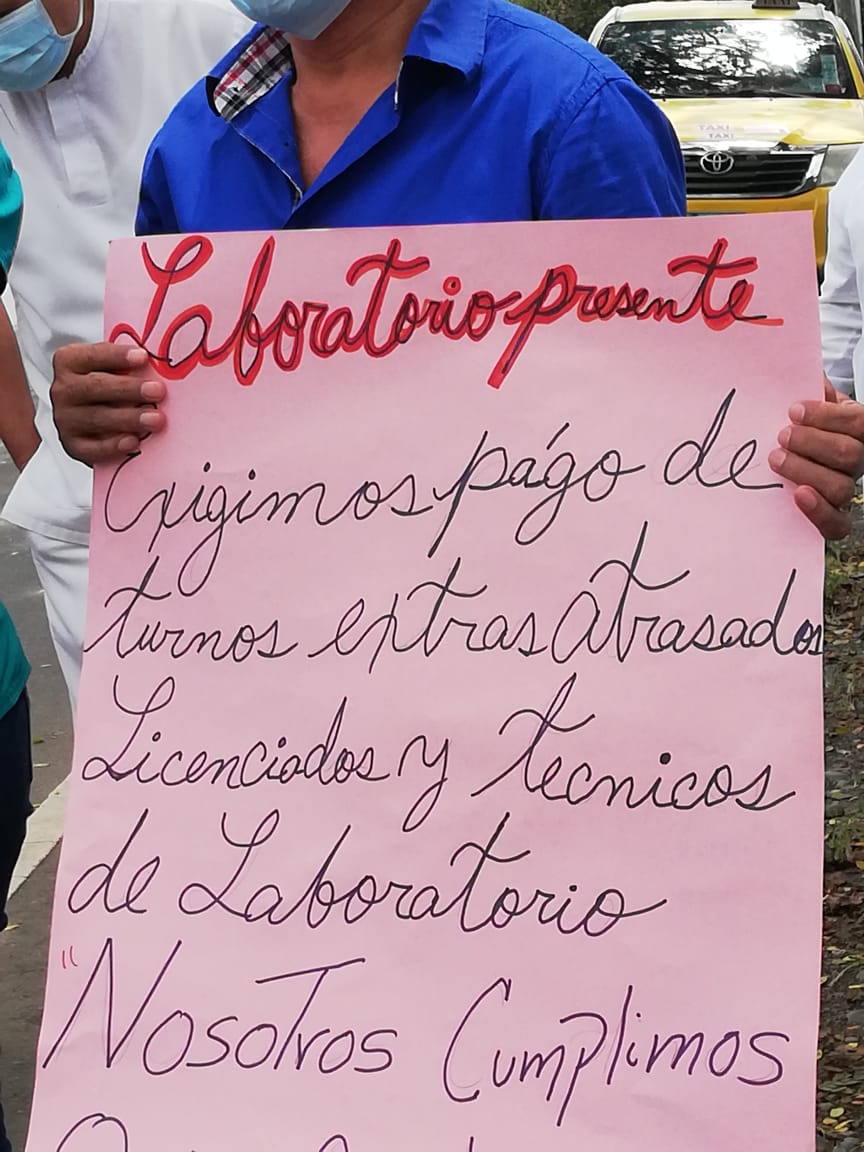 TAXI
TAXI
TAXI
Laboratorio presente
Exigimos págo de
turnos extras atrasados
Licenciados y tecnicos
de Laboratorio
"Nosotros Cumplimos